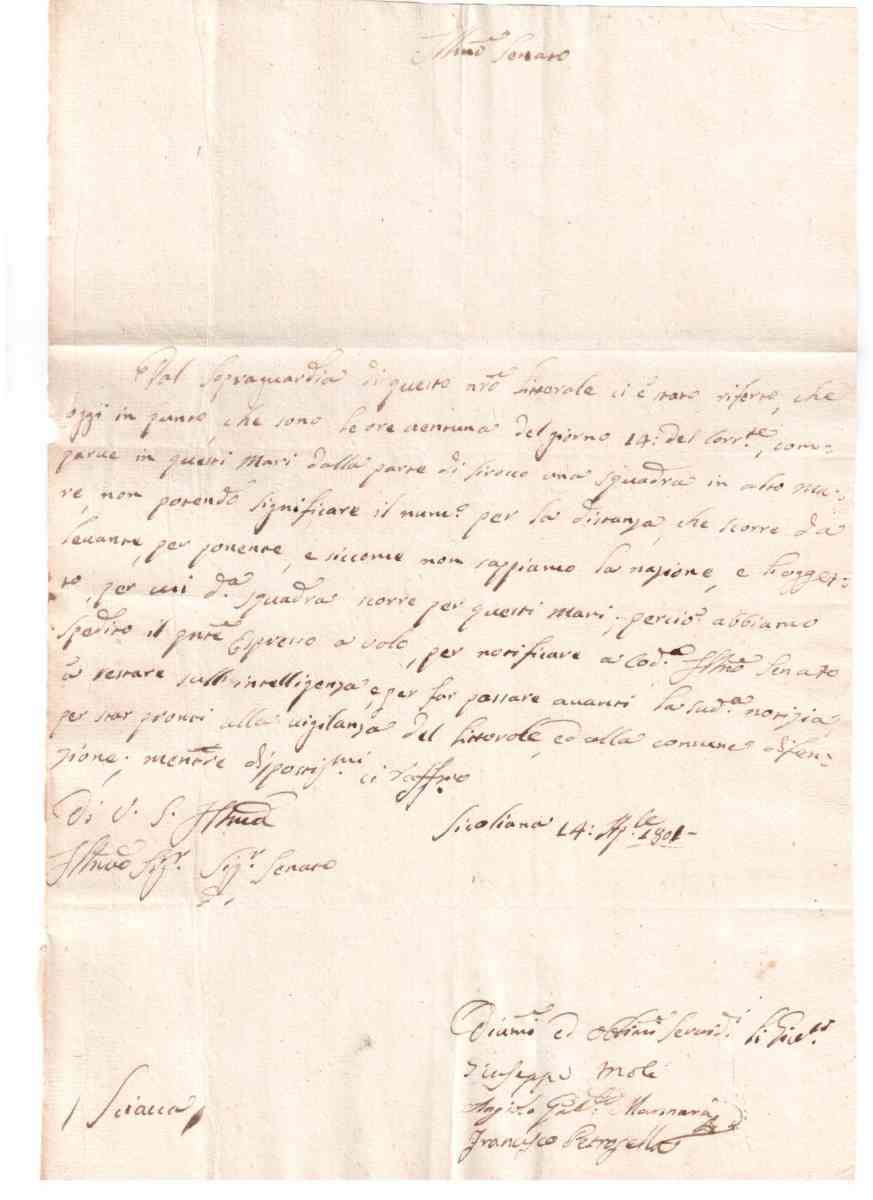 Illmo Senato
Dal Sopraguardia di questo nrõ littorale ci è stato riferto, che
oggi in punto, che sono le ore ventuna del giorno 14: del Corr.te, com=
parve in questi Mari dalla parte di sirocco una squadra in alto ma=
re, non potendo significare il num.o per la distanza, che scorre da
levante, per ponente, e siccome non sappiamo la nazione, e l'ogget=
to, per cui d.a squadra scorre per questi Mari; perciò abbiamo
spedito il pnte Espresso a volo, per notificare a Cod.o Illmo Senato
a restare sull'intelligenza, e per far passare avanti la sud.a notizia,
per star pronti alla vigilanza del littorale, ed alla comune difen=
zione; mentre dispostis.mi ci raffmo
Di V. S. Illma
Siculiana 14: Ap.le 1801-
Illmo Sig.r Sig.r Senato
ed Obblmi Servid.i li Giu.ti
Giuseppe Moli
Angilo Mannarà
Francesco Petrusella
Sciacca